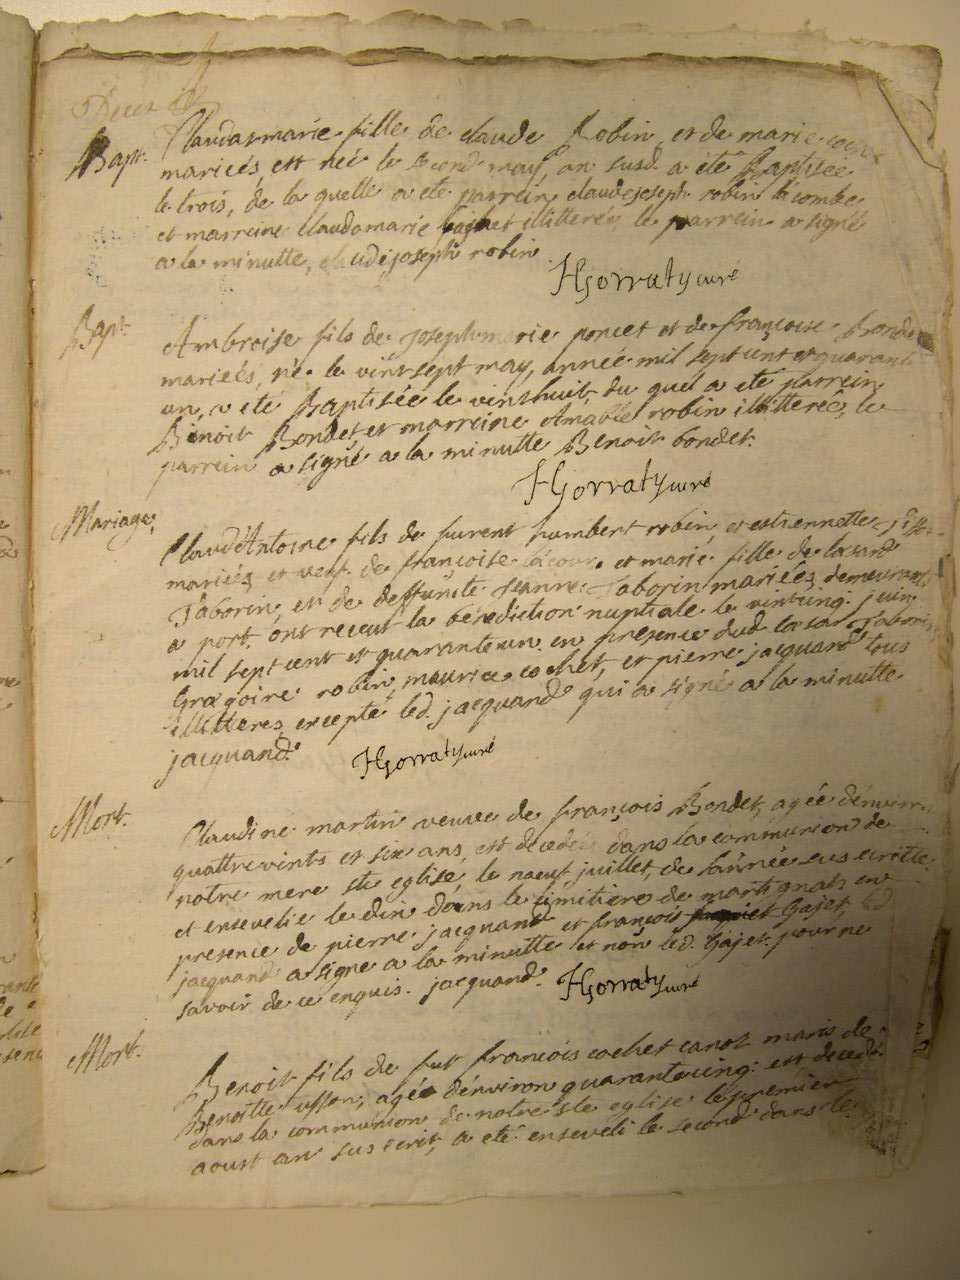 Bapt. Claudamarie fille de claude Robin et de marie
mariés, est née le second may, an susd. a été Baptisée
le trois, de la quelle a été parrein claudejoseph robin lacombe
et marreine Claudamarie illitterée, le parrein a signé
a la minutte, claudejoseph robin
HGorraty curé
Bapt. Ambroise fils de Josephmarie poncet et de françoise Bondet
mariéés, né le vintsept may, année mil sept cent et quarante
un, a été Baptisée le vinthuit, du quel a été parrein
Benoit Bondet, et marreine Amable robin illitterée, le
parrein a signé a la minutte Benoit bondet.
HGorraty curé
Mariage, Claud'Antoine fils de furent humbert robin, et estiennette
mariés, et veuf de françoise lacour, et marie fille de lasard
Taborin, et de deffunte Jeanne Taborin mariéés, demeurants
a port, ont receut la bénédiction nuptiale le vintcinq juin
mil sept cent et quarante un en présence dud. lasar Taborin,
Gregoire robin, maurice cochet, et pierre jacquand tous
illitteres, excepté led. jacquand qui a signé a la minutte
jacquand. HGorraty curé
Mort. Claudine martin veuve de françois Bondet, agée dénviron
quattrevints et six ans, est decedée dans la communion de
notre mere ste eglise le neuf juillet, de lánnée sus ecritte
et ensevelie le dix dans le cimitiere de martignat en
presence de pierre jacquand et françois Gajet, led.
jacquand a signe a la minutte et non led. Gajet. pour ne
savoir de ce enquis. jacquand. HGorraty curé
Mort. Benoit fils de fut françois cochet canot maris de
Benoitte uffon, agée dénviron quarantecinq: est decedé
dans la communion de notre ste eglise le premier
aoust an sus ecrit, a eté enseveli le second dans le